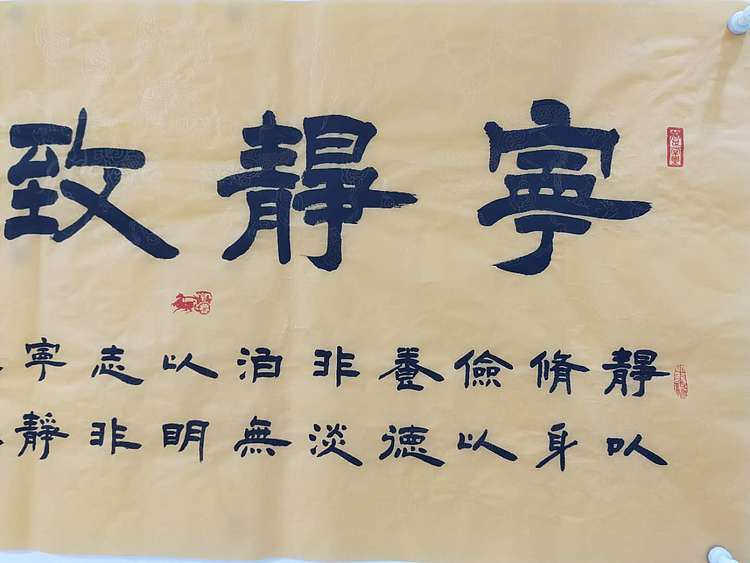 寧靜致
靜以
脩身
儉以
養德
非淡
泊無
以明
志非
寧靜